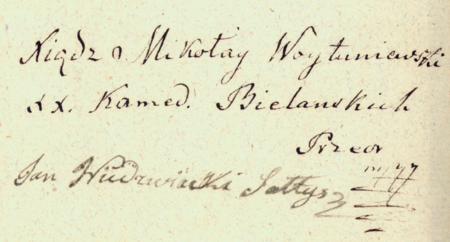 Xiądz Mikołay Woytuniewski
xx. Kamed. Bielanskich
Przeor
Jan Sołtys